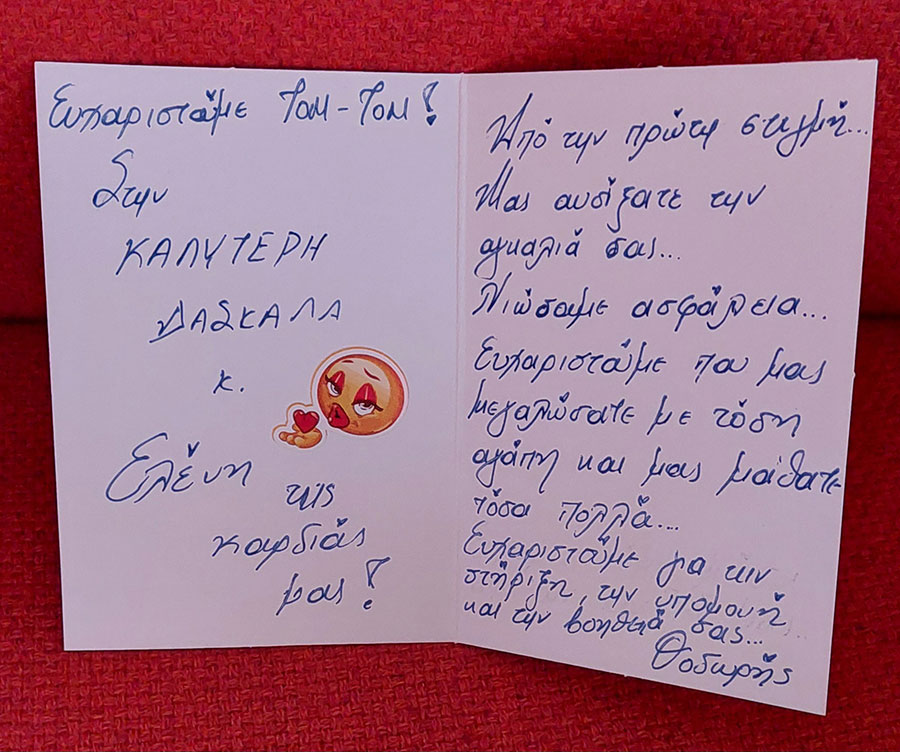 Ευχαριστούμε Τομ-Τομ!
Στην
ΚΑΛΥΤΕΡΗ
ΔΑΣΚΑΛΑ
κ.
Ελένη
της
καρδιάς
μας!
Από την πρώτη στιγμή...
Μας ανοίξατε την
αγκαλιά σας...
Νιώσαμε ασφάλεια...
Ευχαριστούμε που μας
μεγαλώσατε με τόση
αγάπη και μας μάθατε
τόσα πολλά...
Ευχαριστούμε για την
στήριξη, την υπομονή
και την βοήθειά σας...
Θοδωρής